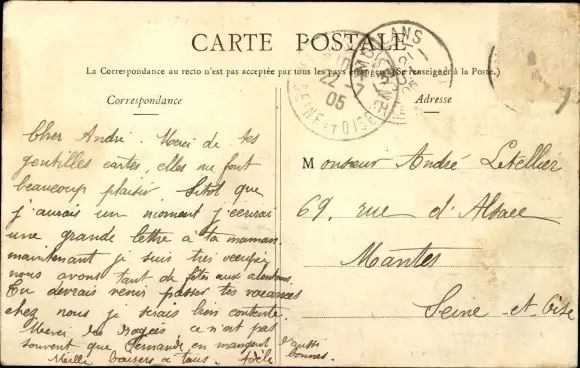 CARTE POSTALE
La Correspondance au recto n'est pas acceptée par tous les pays étrangers (Se renseigner à la Poste.)
Correspondance
Cher André. Merci de tes
gentilles cartes, elles me font
beaucoup plaisir Sitot que
j'aurais un moment j'ecrirai
une grande lettre à ta maman.
maintenant je suis très occupée
nous avons tant de fêtes aux alentours.
Tu devrais venir passer tes vacances
chez nous je serais bien contente.
Merci des dragées, ce n'est pas
souvent que Fernande en mangent d'aussi
bonnes.
Mille baisers à tous.
Adresse
Monsieur André Letellier
69, rue d'Alsace
Mantes
Seine-et-Oise
22
05
SEINE ET OISE
ANS
21
05